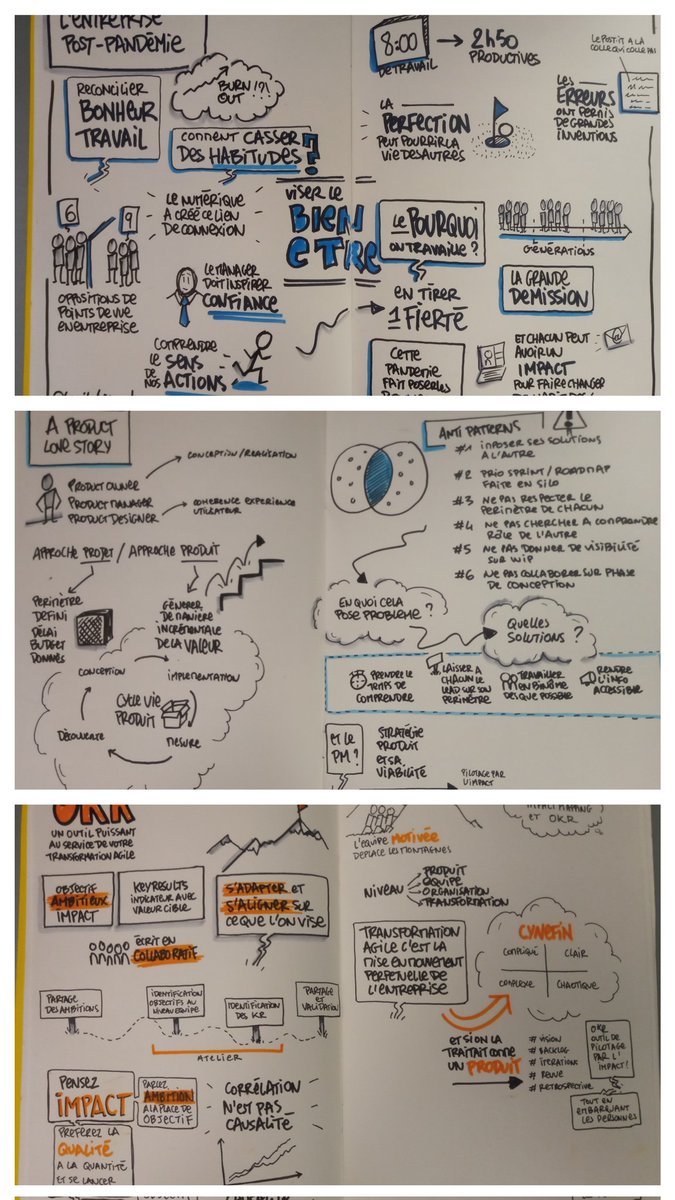 L'ENTREPRISE
POST-PANDÉMIE
RECONCILIER
BONHEUR
TRAVAIL
BURN !?!
OUT
COMMENT CASSER
DES HABITUDES ?
6
9
OPPOSITIONS DE
POINTS DE VUE
EN ENTREPRISE
LE NUMÉRIQUE
A CRÉÉ CE LIEN
DE CONNEXION
LE MANAGER
DOIT INSPIRER
CONFIANCE
COMPRENDRE
LE SENS
DE NOS ACTIONS
VISER LE
BIEN
ETRE
8:00
DE TRAVAIL
2h50
PRODUCTIVES
LE POST-IT A LA
COLLE QUI COLLE PAS
LA
PERFECTION
PEUT POURRIR LA
VIE DES AUTRES
LES
ERREURS
ONT PERMIS
DE GRANDES
INVENTIONS
LE POURQUOI
ON TRAVAILLE ?
GÉNÉRATIONS
LA GRANDE
DEMISSION
EN TIRER
1 FIERTÉ
CETTE
PANDEMIE
FAIT POSER LES
ET CHACUN PEUT
AVOIR UN
IMPACT
POUR FAIRE CHANGER
A PRODUCT
LOVE STORY
CONCEPTION / REALISATION
PRODUCT OWNER
PRODUCT MANAGER
PRODUCT DESIGNER
COHERENCE EXPERIENCE
UTILISATEUR
APPROCHE PROJET / APPROCHE PRODUIT
PERIMÈTRE
DEFINI
DÉLAI
BUDGET
DONNÉS
GÉNERER
DE MANIÈRE
INCRÉMENTALE
DE LA VALEUR
CONCEPTION
IMPLEMENTATION
CYCLE VIE
PRODUIT
DÉCOUVERTE
MESURE
ANTI PATTERNS
#1 IMPOSER SES SOLUTIONS
À L'AUTRE
#2 PRIO SPRINT / ROADMAP
FAITE EN SILO
#3 NE PAS RESPECTER LE
PERIMÈTRE DE CHACUN
#4 NE PAS CHERCHER A COMPRENDRE
RÔLE DE L'AUTRE
#5 NE PAS DONNER DE VISIBILITÉ
SUR WIP
#6 NE PAS COLLABORER SUR PHASE
DE CONCEPTION
EN QUOI CELA
POSE PROBLÈME ?
QUELLES
SOLUTIONS ?
PRENDRE LE
TEMPS DE
COMPRENDRE
LAISSER A
CHACUN LE
LEAD SUR SON
PERIMÈTRE
TRAVAILLER
EN BINÔME
DES QUE POSSIBLE
RENDRE
L'INFO
ACCESSIBLE
ET LE
PM ?
STRATÉGIE
PRODUIT
ET SA
VIABILITÉ
PILOTAGE PAR
L'IMPACT
OKR
UN OUTIL PUISSANT
AU SERVICE DE VOTRE
TRANSFORMATION AGILE
OBJECTIF
AMBITIEUX
IMPACT
KEY RESULTS
INDICATEUR AVEC
VALEUR CIBLE
S'ADAPTER ET
S'ALIGNER SUR
CE QUE L'ON VISE
ÉCRIT EN
COLLABORATIF
PARTAGE
DES AMBITIONS
IDENTIFICATION
OBJECTIFS AU
NIVEAU EQUIPE
IDENTIFICATION
DES KR
PARTAGE
ET
VALIDATION
ATELIER
PENSEZ
IMPACT
PARLEZ
AMBITION
A LA PLACE DE
OBJECTIF
PRÉFÉREZ LA
QUALITÉ
A LA QUANTITÉ
ET SE LANCER
CORRÉLATION
N'EST PAS
CAUSALITÉ
L'EQUIPE MOTIVÉE
DEPLACE LES MONTAGNES
IMPACT MAPPING
ET OKR
NIVEAU
PRODUIT
EQUIPE
ORGANISATION
TRANSFORMATION
TRANSFORMATION
AGILE C'EST LA
MISE EN MOUVEMENT
PERPETUELLE DE
L'ENTREPRISE
CYNEFIN
COMPLIQUÉ
CLAIR
COMPLEXE
CHAOTIQUE
ET SI ON LA
TRAITAIT COMME
UN PRODUIT
# VISION
# BACKLOG
# ITERATIONS
# REVUE
# RETROSPECTIVE
OKR
OUTIL DE
PILOTAGE
PAR L'
IMPACT !
TOUT EN
EMBARQUANT
LES PERSONNES